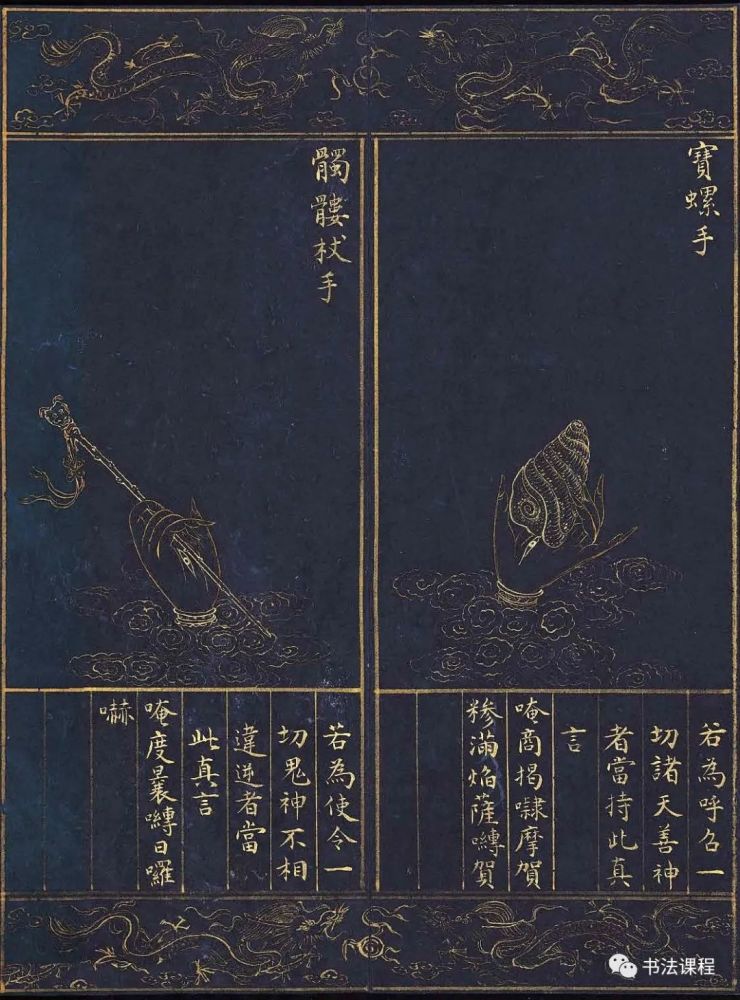 寶螺手
若為呼召一
切諸天善神
者當持此真
言
唵商揭㘑摩賀
糝滿焰薩嚩賀
髑髏杖手
若為使令一
切鬼神不相
違逆者當
此真言
唵度曩嚩日囉
嚇
书法课程